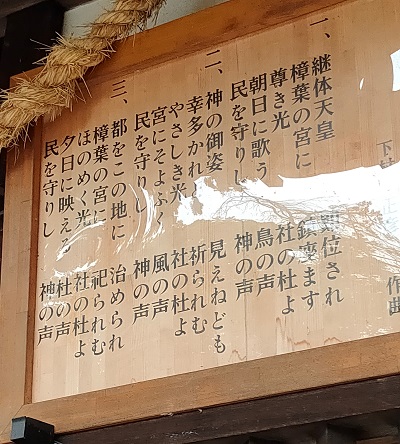 下 作曲
一、継体天皇 即位され
樟葉の宮に 鎮座ます
尊き光 社の杜よ
朝日に歌う 鳥の声
民を守りし 神の声
二、神の御姿 見えねども
幸多かれ 祈られむ
やさしき光 社の杜よ
宮にそよふく 風の声
民を守りし 神の声
三、都をこの地に 治められ
樟葉の宮に 祀られむ
ほのめく光 社の杜よ
夕日に映える 杜の声
民を守りし 神の声